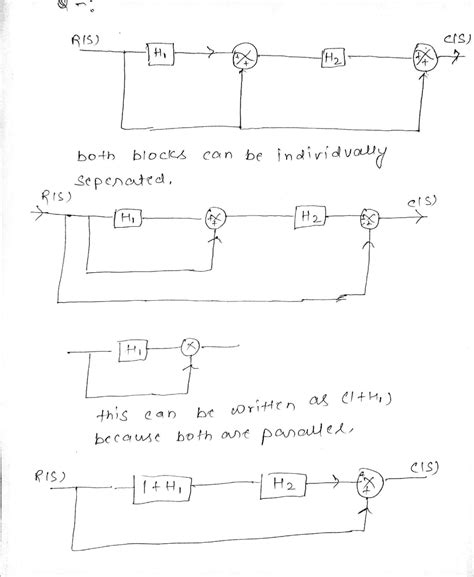 R(S) H1 H2 C(S)
both blocks can be individually
seperated.
R(S) H1 H2 C(S)
H1
this can be written as (1+H1)
because both are parallel.
R(S) 1+H1 H2 C(S)